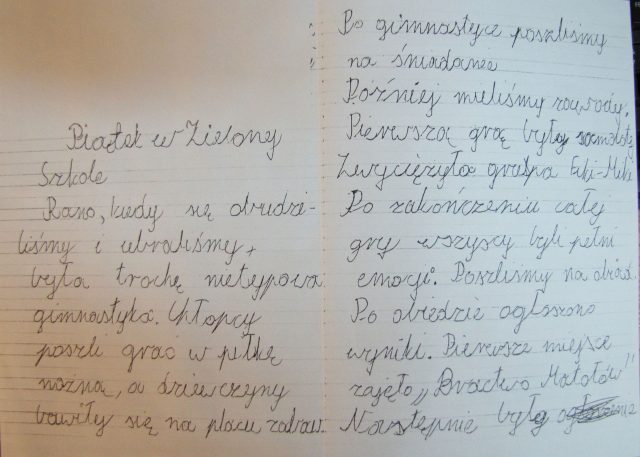 Piątek w Zielonej
Szkole
Rano, kiedy się obudzi-
liśmy i ubraliśmy,
była trochę nietypowa
gimnastyka. Chłopcy
poszli grać w piłkę
nożną, a dziewczyny
bawiły się na placu zabaw.
Po gimnastyce poszliśmy
na śniadanee
Później mieliśmy zawody.
Pierwszą grą były
Zwyciężyła grupa Eki-Meki
Po zakończeniu całej
gry wszyscy byli pełni
emocji. Poszliśmy na obiad.
Po obiedzie ogłoszono
wyniki. Pierwsze miejsce
zajęło „Bractwo Matołów"
Następnie były